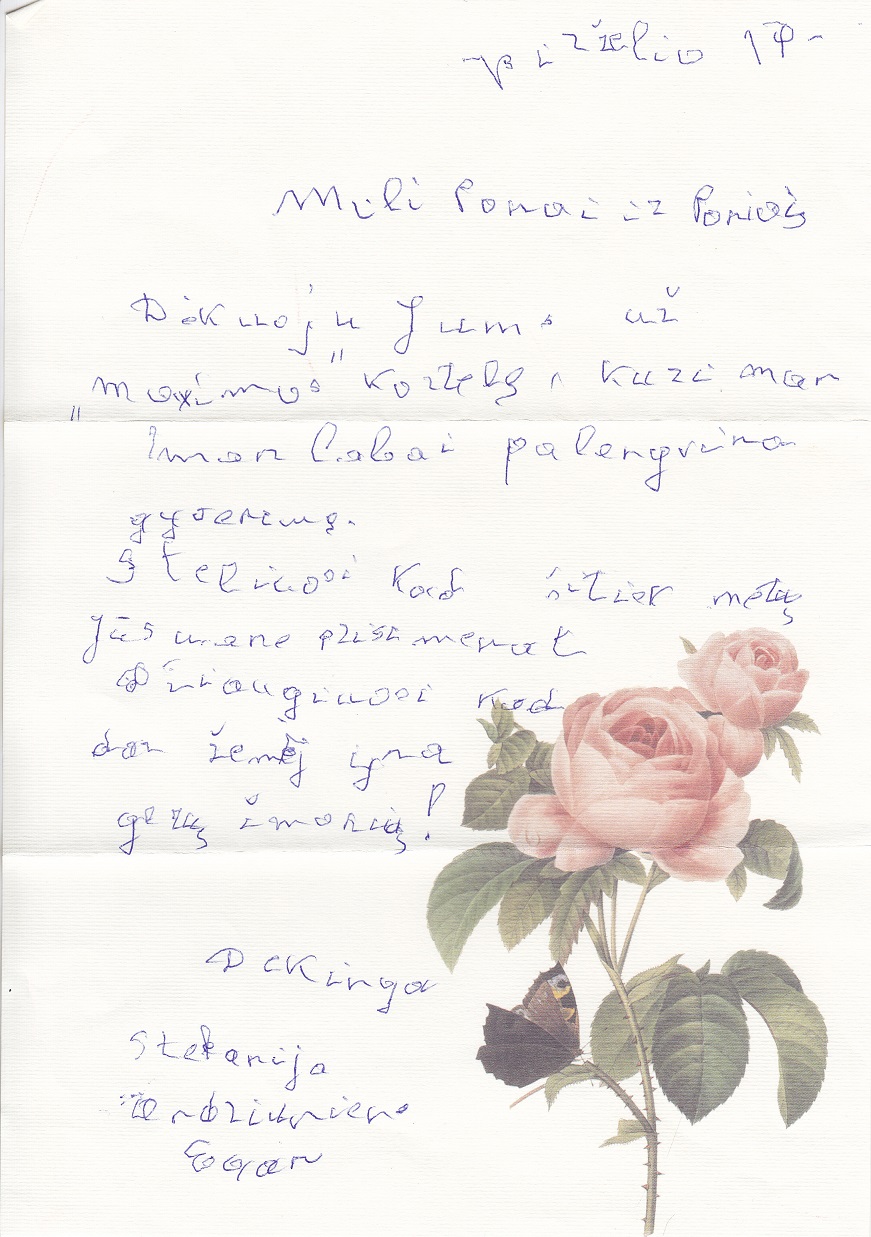 birželio 17-
Mieli Ponai ir Ponios
Dėkuoju Jums už
„Maximos" kortelę, kuri man
man labai palengvina
gyvenimą.
Stebiuosi kad šitiek metų
Jūs mane prisimenat
Džiaugiuosi kad
dar žemėj yra
gerų žmonių!
Dėkinga
Stefanija